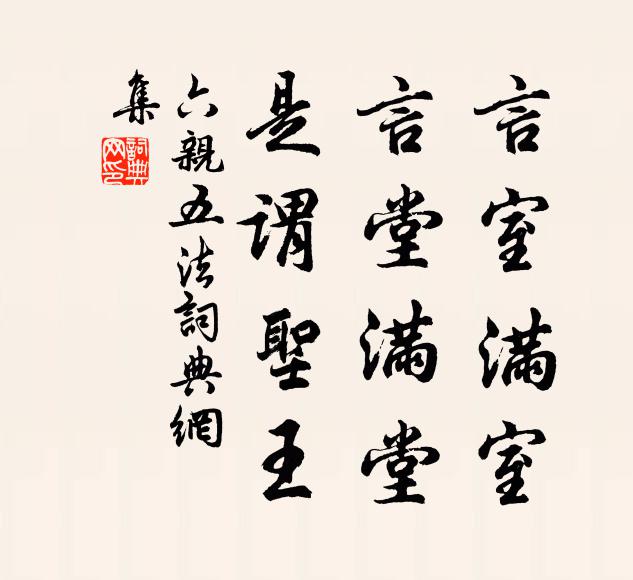 言室滿室
言堂滿堂
是謂聖王
六親五法詞典網
集
詞典
网印